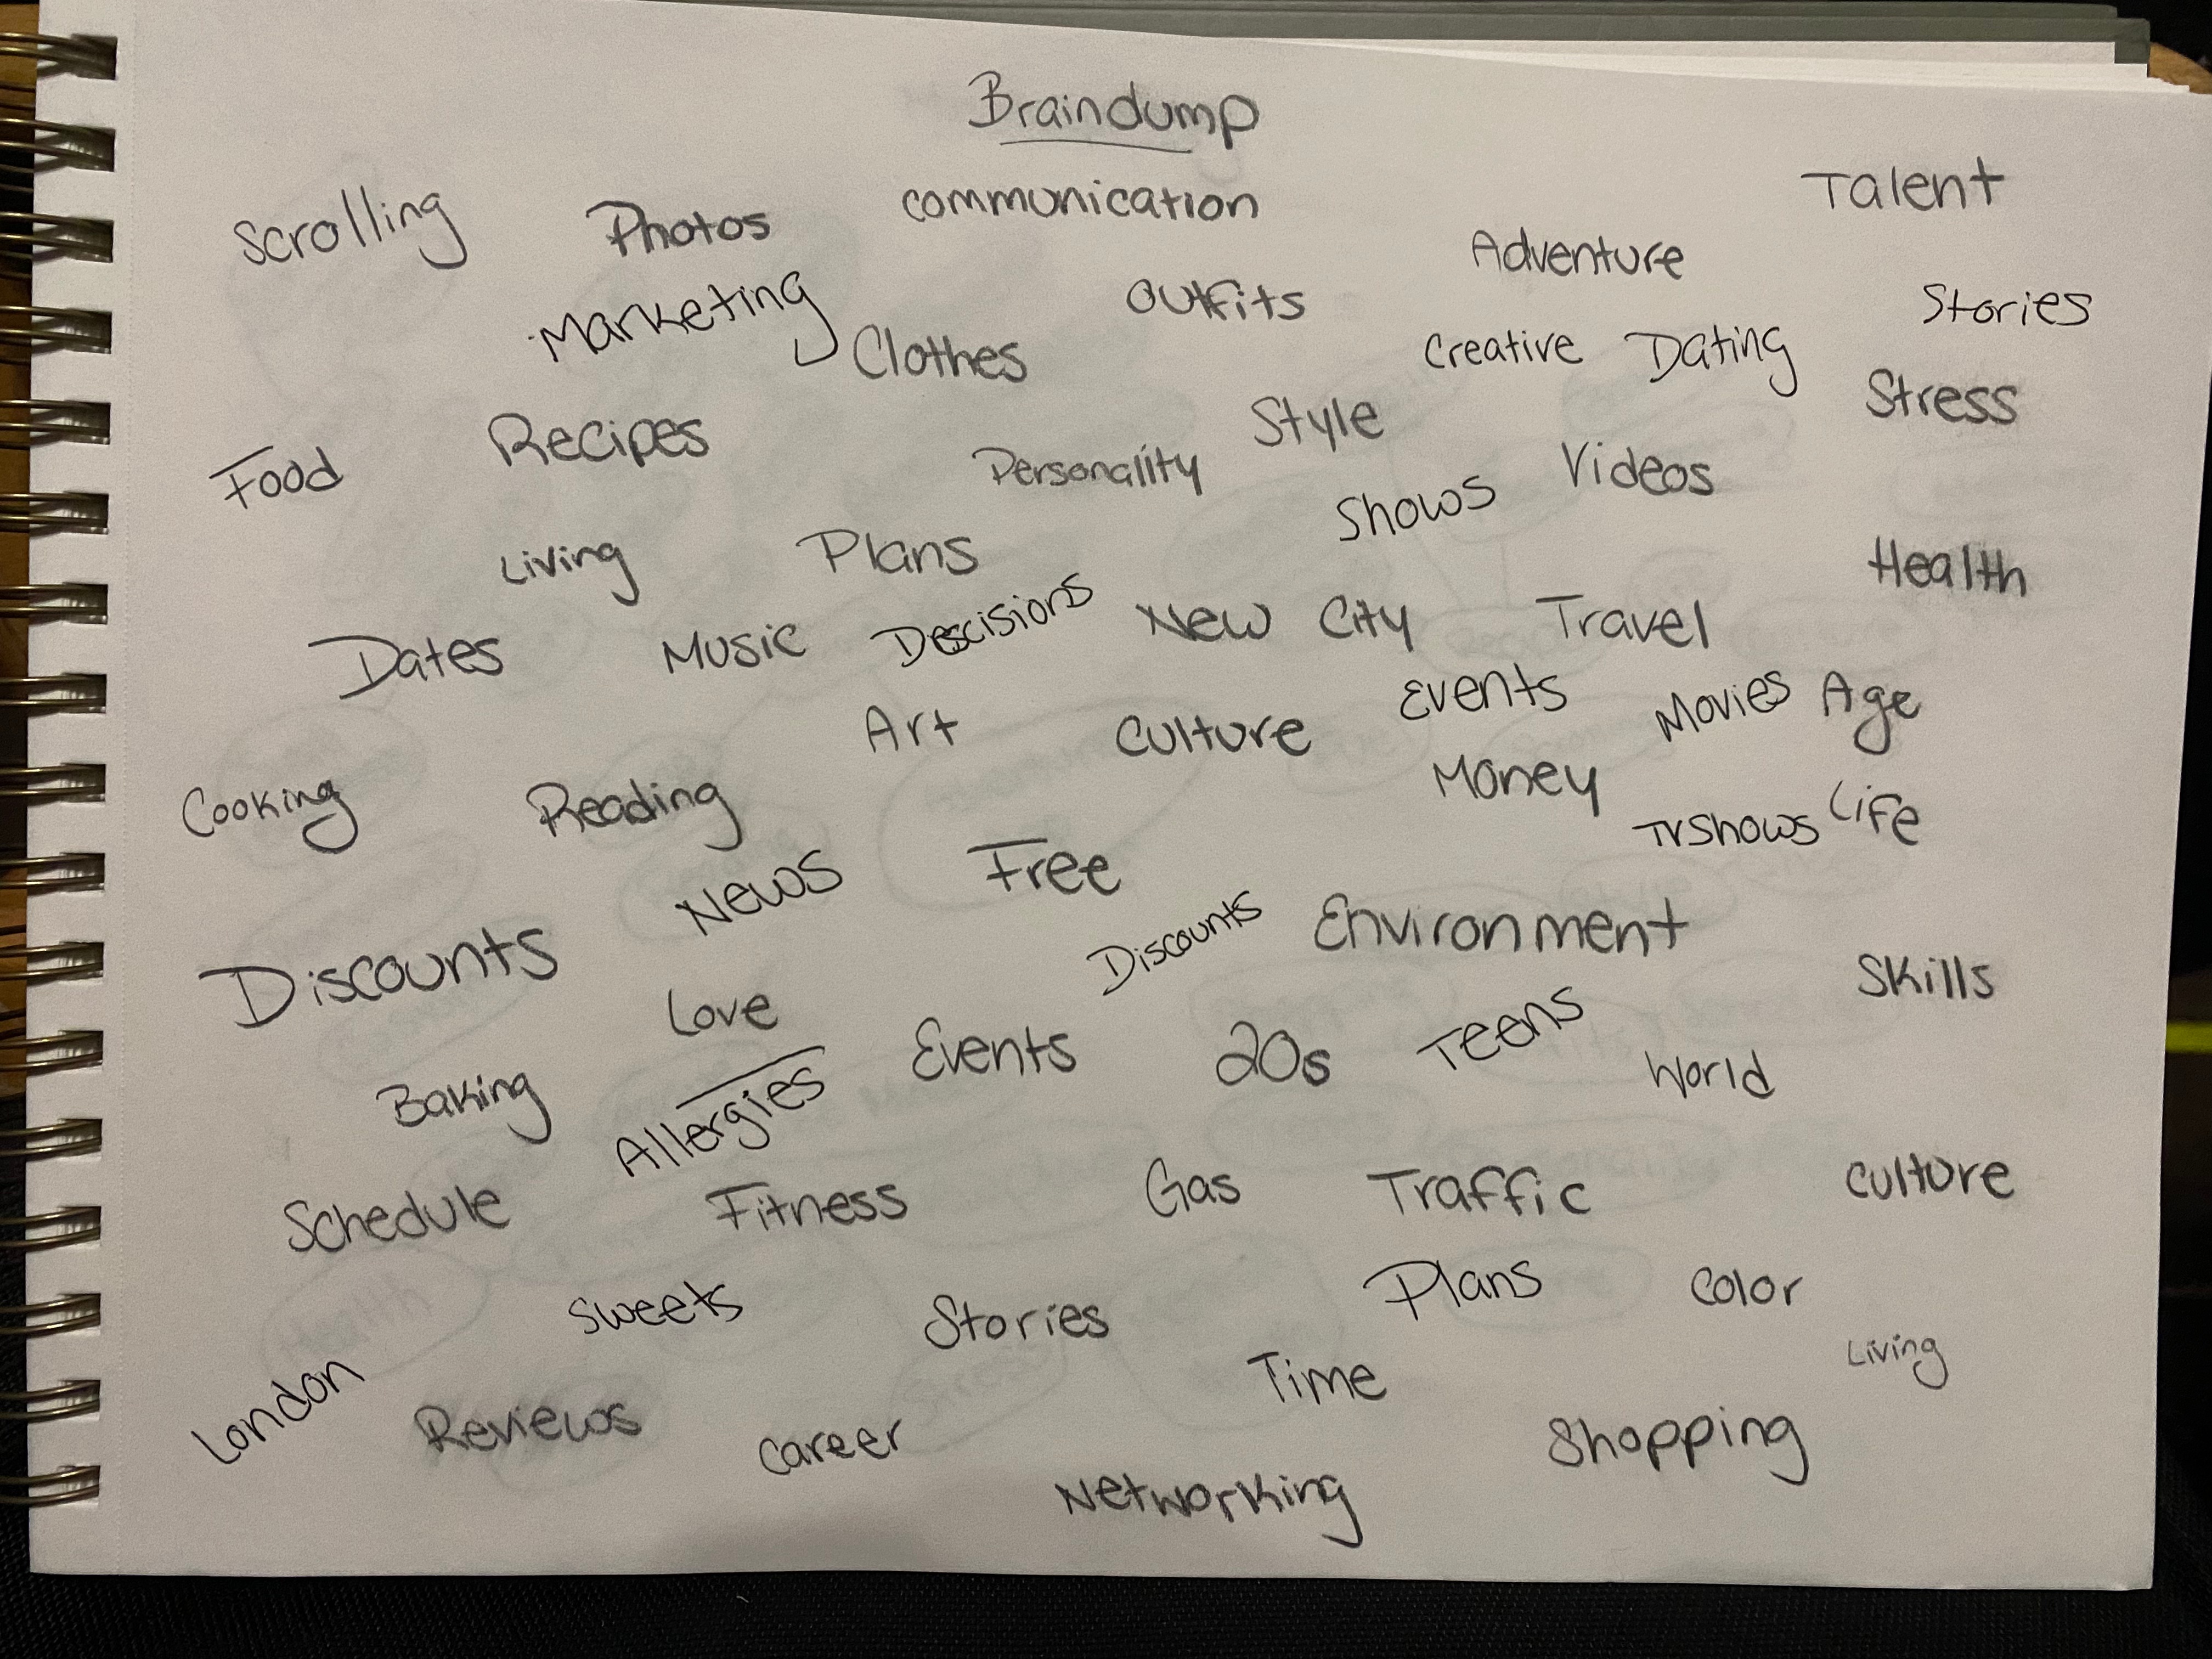 Braindump
Talent
Scrolling
Photos
communication
Adventure
Stories
Marketing
Outfits
Clothes
Creative
Dating
Stress
Style
Food
Recipes
Personality
Videos
Shows
Living
Plans
Health
Dates
Music
Descisions
New City
Travel
Events
Movies
Age
Art
Culture
Money
Cooking
Reading
TVShows
Life
News
Free
Discounts
Environment
Discounts
Skills
Love
Events
20s
Teens
World
Baking
Allergies
Schedule
Fitness
Gas
Traffic
Culture
Sweets
Stories
Plans
Color
Living
London
Reviews
Career
Time
Shopping
Networking